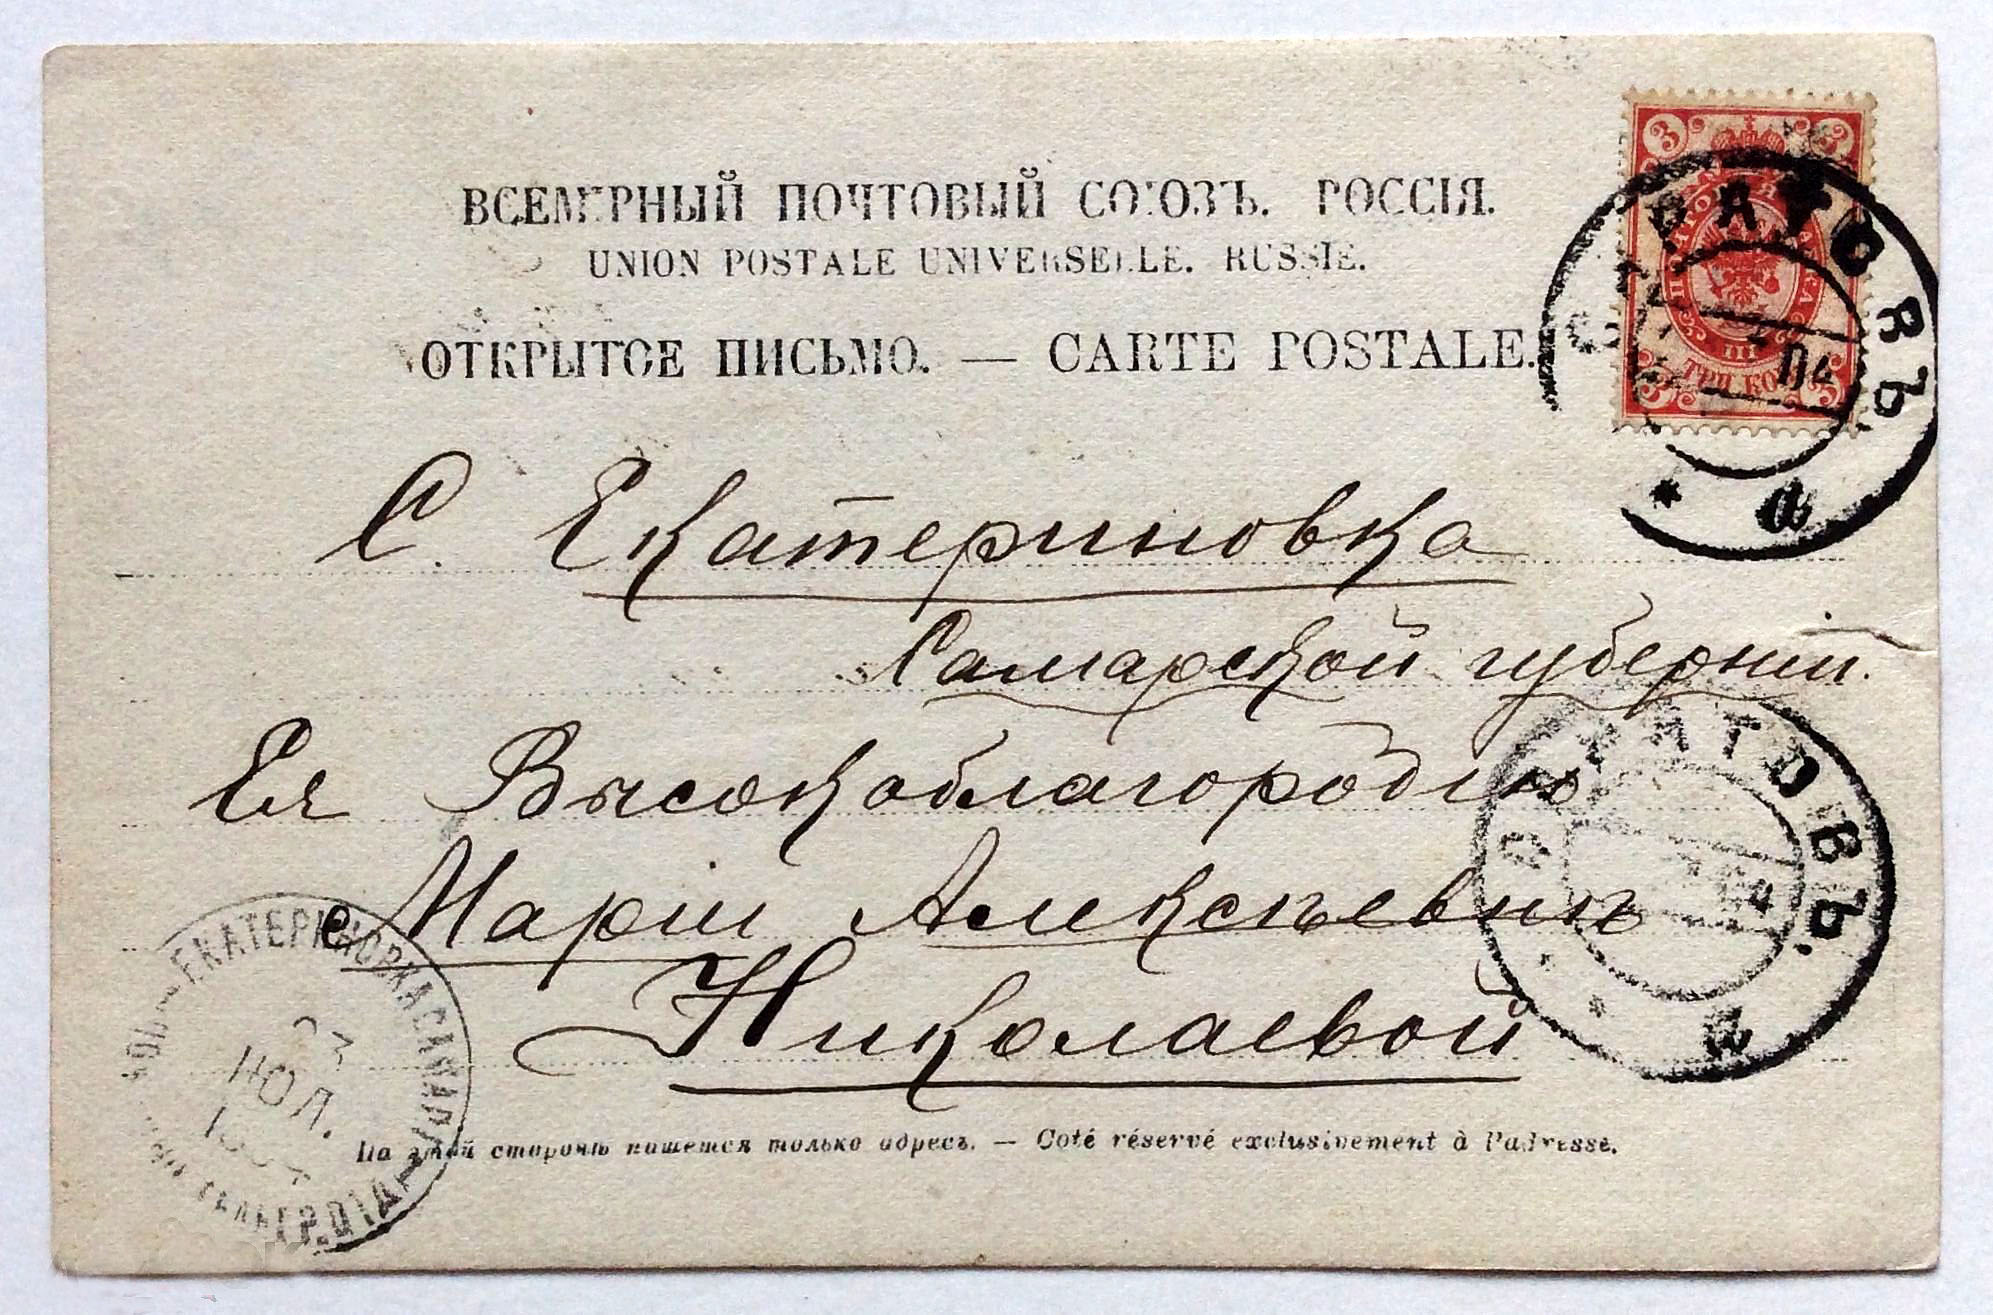 ВСЕМІРНЫЙ ПОЧТОВЫЙ СОЮЗЪ. РОССІЯ.
UNION POSTALE UNIVERSELLE. RUSSIE.
ОТКРЫТОЕ ПИСЬМО. — CARTE POSTALE.
3 3
ТРИ КОП
3 3
САРАТОВЪ.
04
* а
С. Екатериновка
Самарской губерніи.
Ея Высокоблагородію
Маріи Алексѣевнѣ
Николаевой
САРАТОВЪ.
4
ЕКАТЕРИНОВКА САМАР.
ІЮЛ.
На этой сторонѣ пишется только адресъ. — Coté réservé exclusivement à l'adresse.